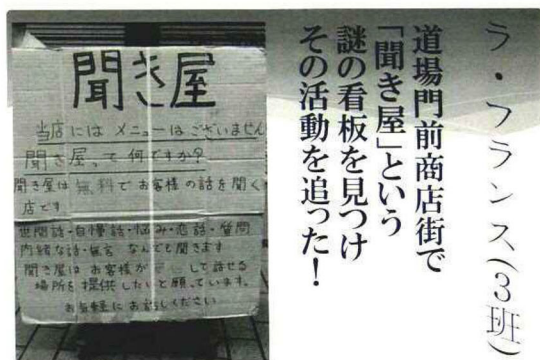 ラ・フランス(3班)
道場門前商店街で
「聞き屋」という
謎の看板を見つけ
その活動を追った!
聞き屋
当店にはメニューはございません
聞き屋、って何ですか?
聞き屋は無料でお客様の話を聞く
店です
世間話・自慢話・悩み・恋話・質問
内緒な話・なんでも聞きます
聞き屋はお客様が して話せる
場所を提供したいと願っています。
お気軽にお話しください